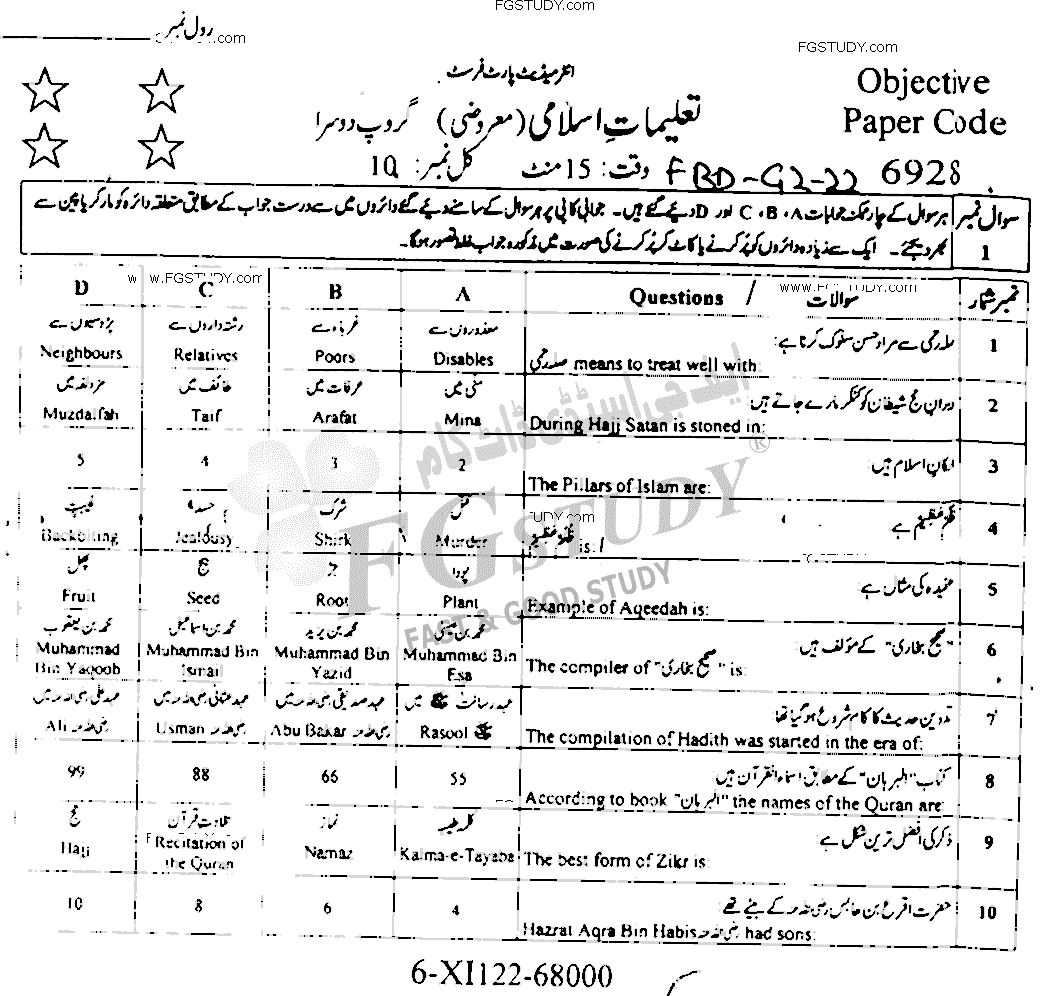 FGSTUDY.com
رول نمبر
.com
FGSTUDY.com
انٹرمیڈیٹ پارٹ فرسٹ
Objective
Paper Code
تعلیماتِ اسلامی (معروضی) گروپ دوسرا
وقت: 15 منٹ کل نمبر: 10
FBD-G2-22 6928
سوال نمبر 1
ہر سوال کے چار ممکنہ جوابات A، B، C اور D دیئے گئے ہیں۔ جوابی کاپی پر ہر سوال کے سامنے دیئے گئے دائروں میں سے درست جواب کے مطابق متعلقہ دائرہ کو مارکر یا پین سے
بھر دیجئے۔ ایک سے زیادہ دائروں کو پُر کرنے یا کاٹ کر پُر کرنے کی صورت میں مذکورہ جواب غلط تصور ہوگا۔
www.FGSTUDY.com
www.FGSTUDY.com
نمبر شمار سوالات / Questions A B C D
1 صلہ رحمی سے مراد حسن سلوک کرنا ہے: معذوروں سے غرباء سے رشتہ داروں سے پڑوسیوں سے
صلہ رحمی means to treat well with: Disables Poors Relatives Neighbours
2 دورانِ حج شیطان کو کنکر مارے جاتے ہیں: منیٰ میں عرفات میں طائف میں مزدلفہ میں
During Hajj Satan is stoned in: Mina Arafat Taif Muzdalfah
3 ارکانِ اسلام ہیں: 2 3 4 5
The Pillars of Islam are:
4 ظُلْمٌ عَظِيْمٌ ہے قتل شرک حسد غیبت
ظُلْمٌ عَظِيْمٌ is: Murder Shirk Jealousy Backbiting
5 عقیدہ کی مثال ہے: پودا جڑ بیج پھل
Example of Aqeedah is: Plant Root Seed Fruit
6 "صحیح بخاری" کے مؤلف ہیں: محمد بن عیسیٰ محمد بن یزید محمد بن اسماعیل محمد بن یعقوب
The compiler of "صحیح بخاری" is: Muhammad Bin Esa Muhammad Bin Yazid Muhammad Bin Ismail Muhammad Bin Yaqoob
7 تدوین حدیث کا کام شروع ہو گیا تھا عہد رسالت ﷺ میں عہد صدیقی رضی اللہ عنہ میں عہد عثمانی رضی اللہ عنہ میں عہد علی رضی اللہ عنہ میں
The compilation of Hadith was started in the era of: Rasool ﷺ Abu Bakar رضی اللہ عنہ Usman رضی اللہ عنہ Ali رضی اللہ عنہ
8 کتاب "البرہان" کے مطابق اسماء القرآن ہیں: 55 66 88 99
According to book "البرہان" the names of the Quran are:
9 ذکر کی افضل ترین شکل ہے: کلمہ طیبہ نماز تلاوتِ قرآن حج
The best form of Zikr is: Kalma-e-Tayaba Namaz Recitation of the Quran Hajj
10 حضرت اقرع بن حابس رضی اللہ عنہ کے بیٹے تھے: 4 6 8 10
Hazrat Aqra Bin Habis رضی اللہ عنہ had sons:
ایف جی اسٹڈی ڈاٹ کام
FGSTUDY
®
FAST & GOOD STUDY
6-XI122-68000